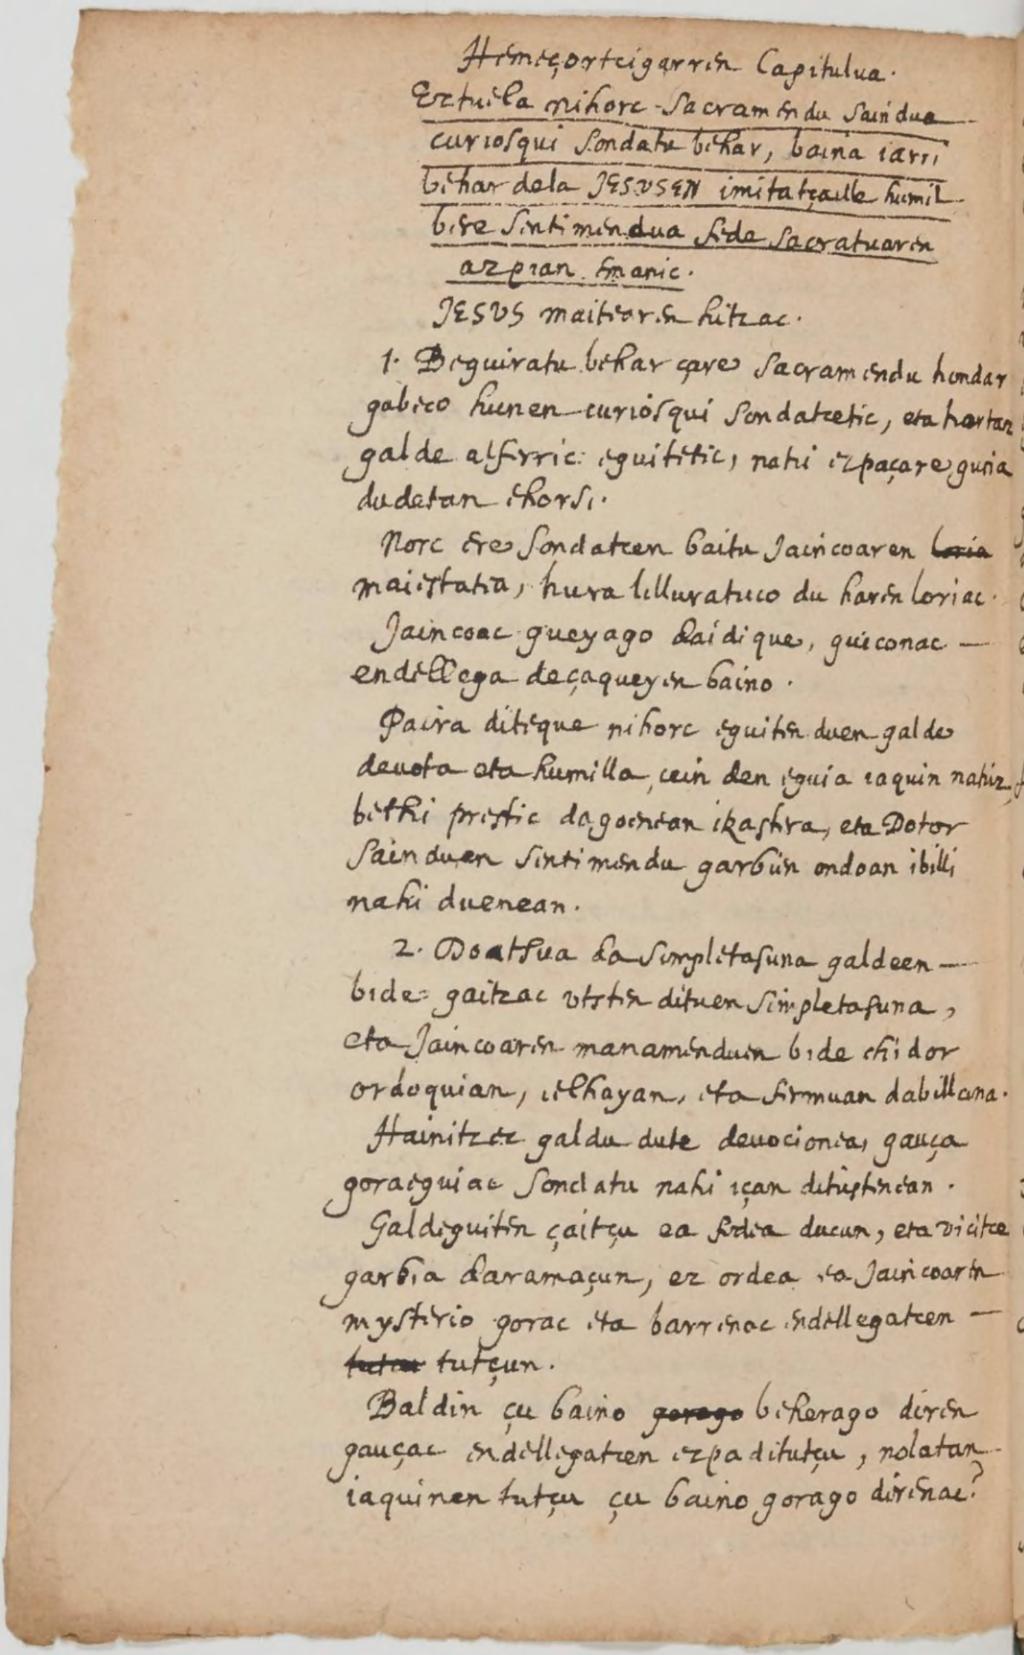 Hemeçorteigarren Capitulua.
Eztuela nihorc Sacramendu Saindua
curiosqui Sondatu behar, baina iarri
behar dela JESUSEN imitatçaille humil
bere Sentimendua fede Sacratuaren
azpian emanic.
JESUS maitearen hitzac.
1. Beguiratu behar çare Sacramendu hondar
gabeco hunen curiosqui Sondatcetic, eta hartan
galde alferric eguitetic, nahi ezpaçare guria
dudetan ehorsi.
Norc ere Sondatcen baitu Jaincoaren loria
maiestatea, hura lilluratuco du haren loriac.
Jaincoac gueyago daidique, guiconac —
endellega deçaqueyen baino.
Paira diteque nihorc eguiten duen galde
devota eta humilla, cein den eguia iaquin nahiz,
bethi prestic dagoenean ikastera, eta Dotor
Sainduen Sentimendu garbien ondoan ibilli
nahi duenean.
2. Doatsua da Simpletasuna galdeen —
bide gaitzac utsten dituen Simpletasuna,
eta Jaincoaren manamenduen bide chidor
ordoquian, celhayan, eta firmuan dabillana.
Hainitzec galdu dute devocionea, gauça
goraeguiac Sondatu nahi içan dituztenean.
Galdeguiten çaitçu ea fedea duçun, eta vicitce
garbia daramaçun, ez ordea ea Jaincoaren
mysterio gorac eta barrenac endellegatcen —
tutçu tutçun.
Baldin çu baino gorago beherago diren
gauçac endellegatcen ezpaditutçu, nolatan
iaquinen tutçu çu baino gorago direnac?